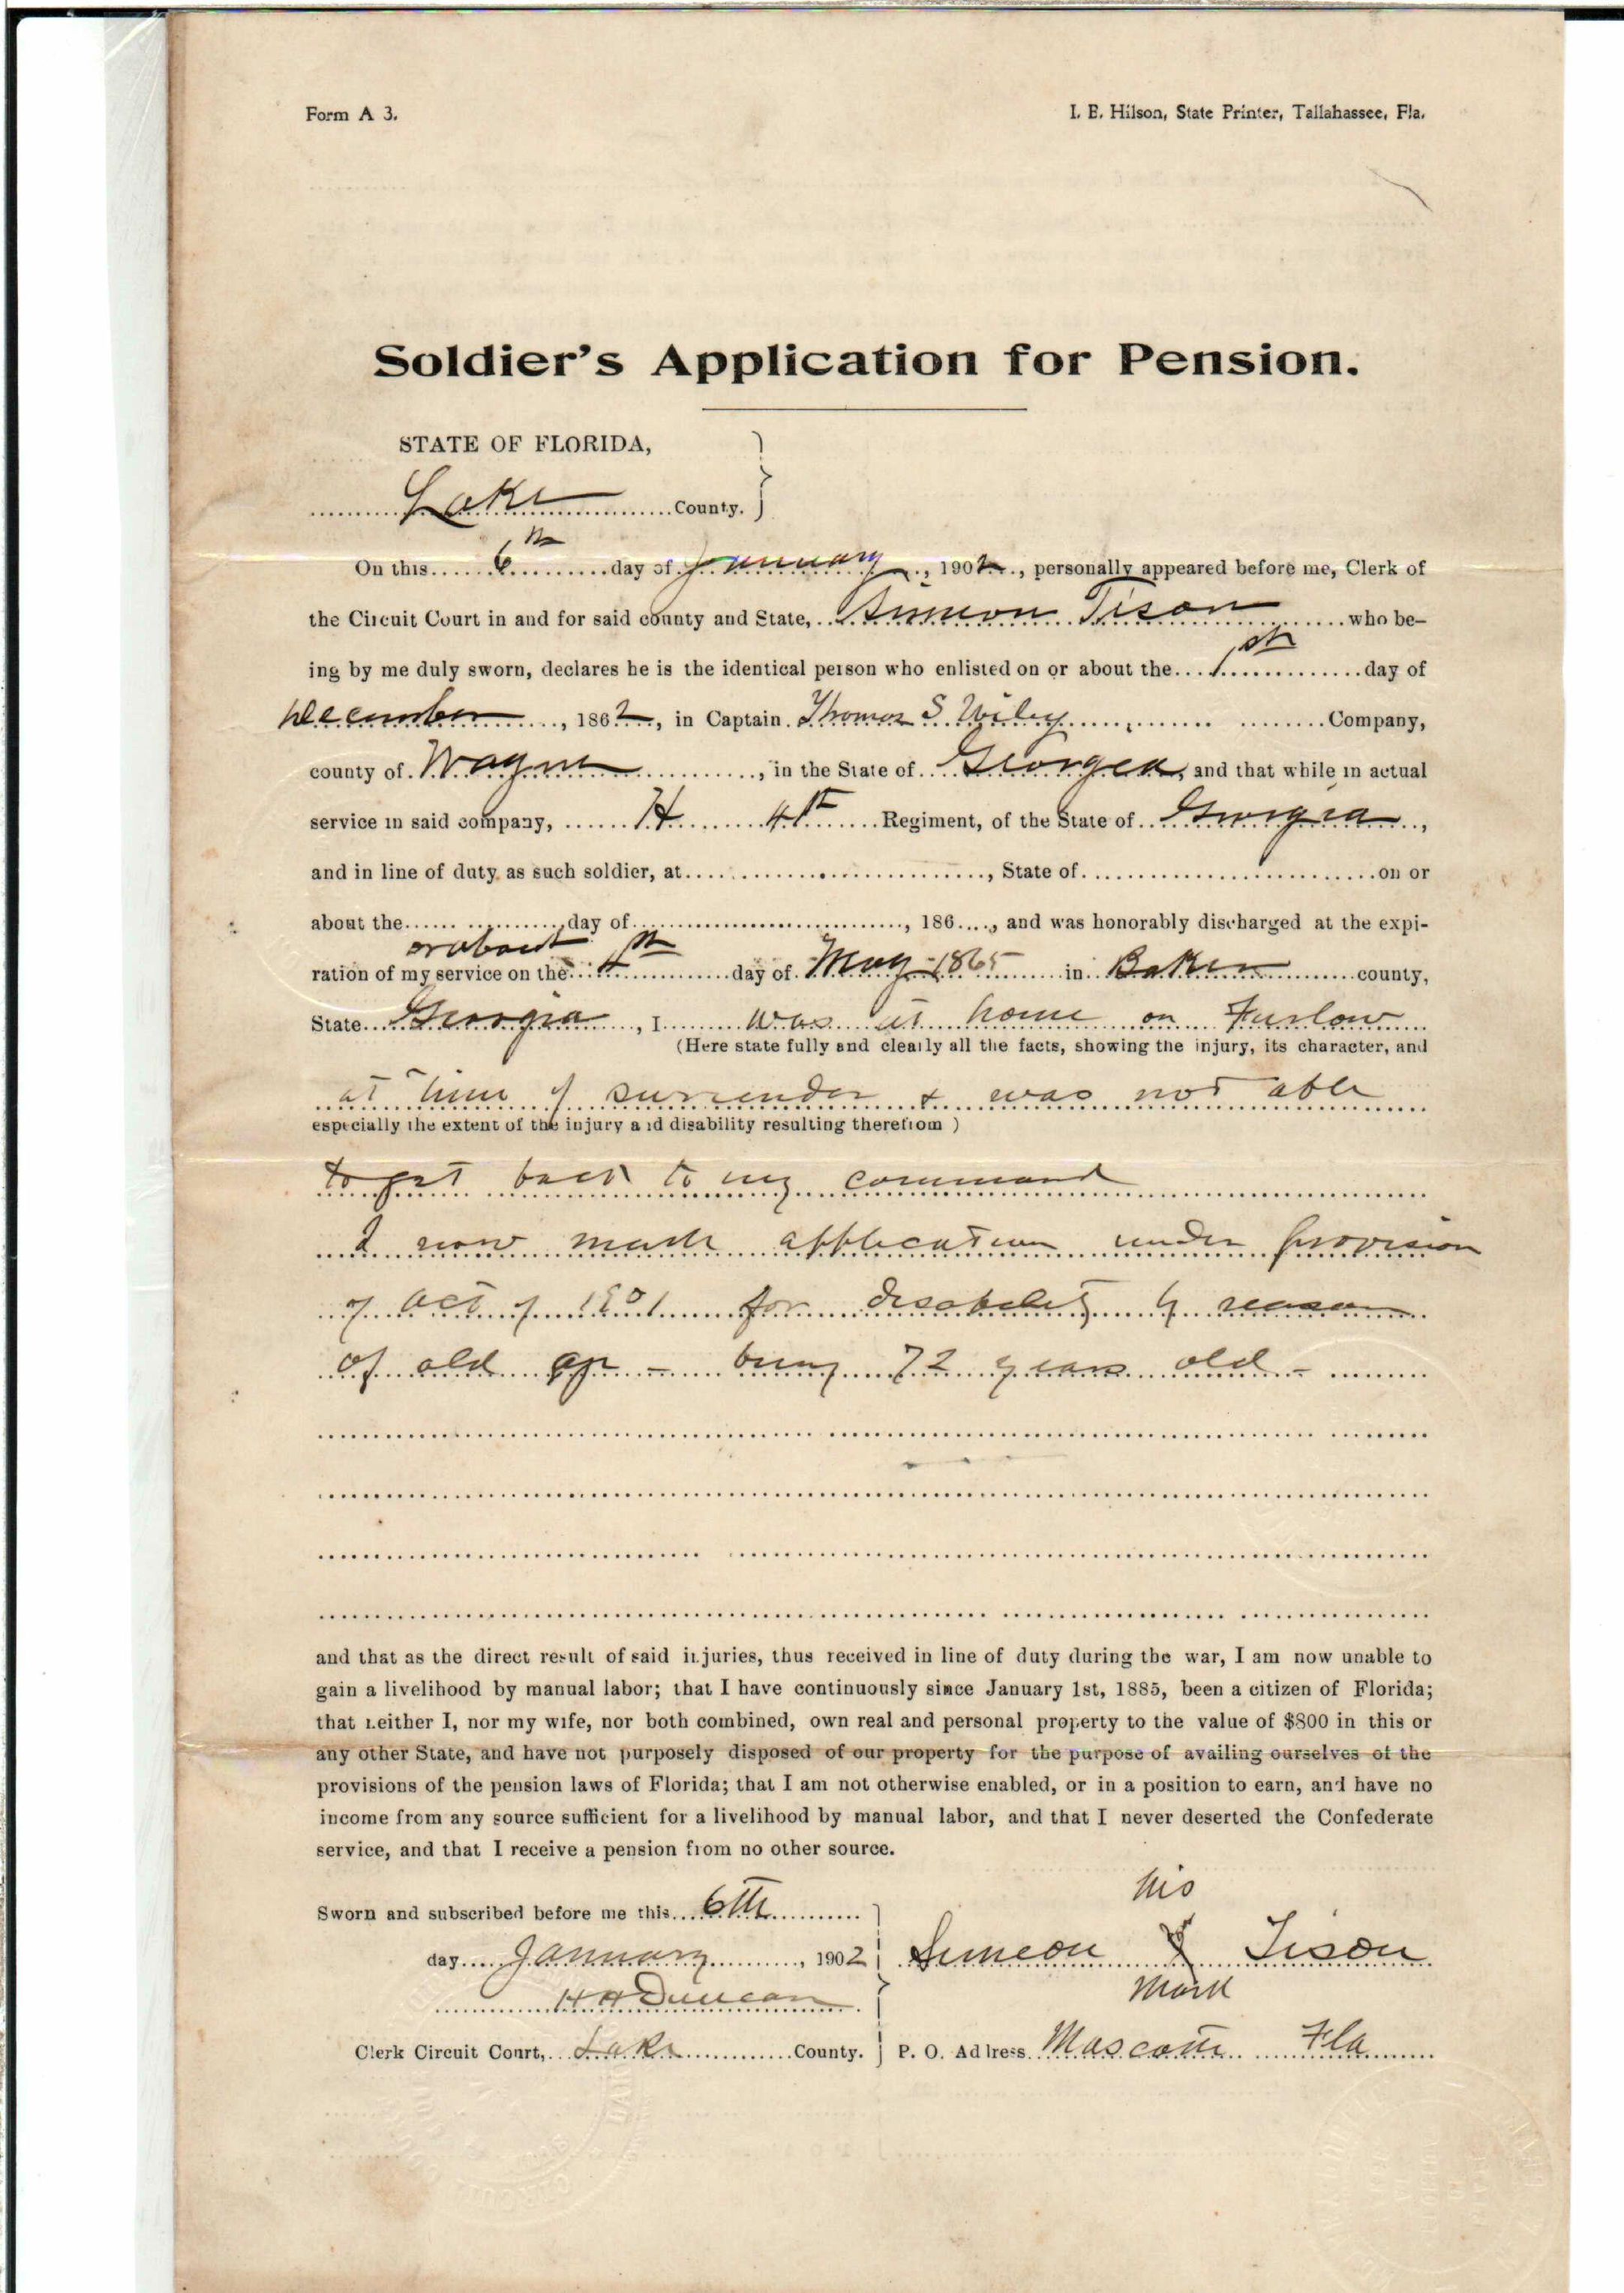 Form A 3.
I. E. Hilson, State Printer, Tallahassee, Fla.
Soldier's Application for Pension.
STATE OF FLORIDA,
Lake County.
On this 6th day of January, 1902, personally appeared before me, Clerk of
the Circuit Court in and for said county and State, Simeon Tison who be-
ing by me duly sworn, declares he is the identical person who enlisted on or about the 1st day of
December, 1862, in Captain Thomas S. Wiley Company,
county of Wayne, in the State of Georgea, and that while in actual
service in said company, H 4th Regiment, of the State of Georgia,
and in line of duty as such soldier, at, State of on or
about the day of, 186, and was honorably discharged at the expi-
or about
ration of my service on the 4th day of May 1865 in Baker county,
State Georgia, I was at home on Furlow
(Here state fully and clearly all the facts, showing the injury, its character, and
at time of surrender & was not able
especially the extent of the injury and disability resulting therefrom )
to get back to my command
I now make application under provision
of act of 1901 for disability by reason
of old age - being 72 years old -
and that as the direct result of said injuries, thus received in line of duty during the war, I am now unable to
gain a livelihood by manual labor; that I have continuously since January 1st, 1885, been a citizen of Florida;
that neither I, nor my wife, nor both combined, own real and personal property to the value of $800 in this or
any other State, and have not purposely disposed of our property for the purpose of availing ourselves of the
provisions of the pension laws of Florida; that I am not otherwise enabled, or in a position to earn, and have no
income from any source sufficient for a livelihood by manual labor, and that I never deserted the Confederate
service, and that I receive a pension from no other source.
his
Sworn and subscribed before me this 6th
day January, 1902
Simeon X Tison
mark
H H Duncan
Clerk Circuit Court, Lake County.
P. O. Adress Mascotte Fla